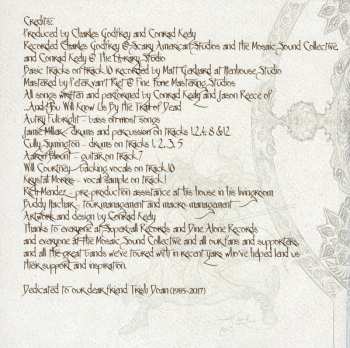 Credits:
Produced by Charles Godfrey and Conrad Keely
Recorded Charles Godfrey @ Scary American Studios and the Mosaic Sound Collective,
and Conrad Keely @ The Library Studio
Basic tracks on track 10 recorded by Matt Gerhard at Henhouse Studio
Mastered by Peter van't Riet @ Fine Tone Mastering Studios
All songs written and performed by Conrad Keely and Jason Reece of
...And You Will Know Us By the Trail of Dead
Autry Fulbright - bass on most songs
Jamie Miller - drums and percussion on tracks 1,2,4, 8 &12
Cully Symington - drums on tracks 1, 2, 3, 5
Aaron Blount - guitar on track 7
Will Courtney - backing vocals on track 10
Krystal Morris - vocal sample on track 1
Rich Mendez - pre-production assistance at his house in his livingroom
Buddy Hachar - tour management and macro-management
Artwork and design by Conrad Keely
Thanks to everyone at Superball Records and Dine Alone Records
and everyone at the Mosaic Sound Collective and all our fans and supporters,
and all the great bands we've toured with in recent years who've helped lend us
their support and inspiration.
Dedicated to our dear friend Trish Doan (1985-2017)